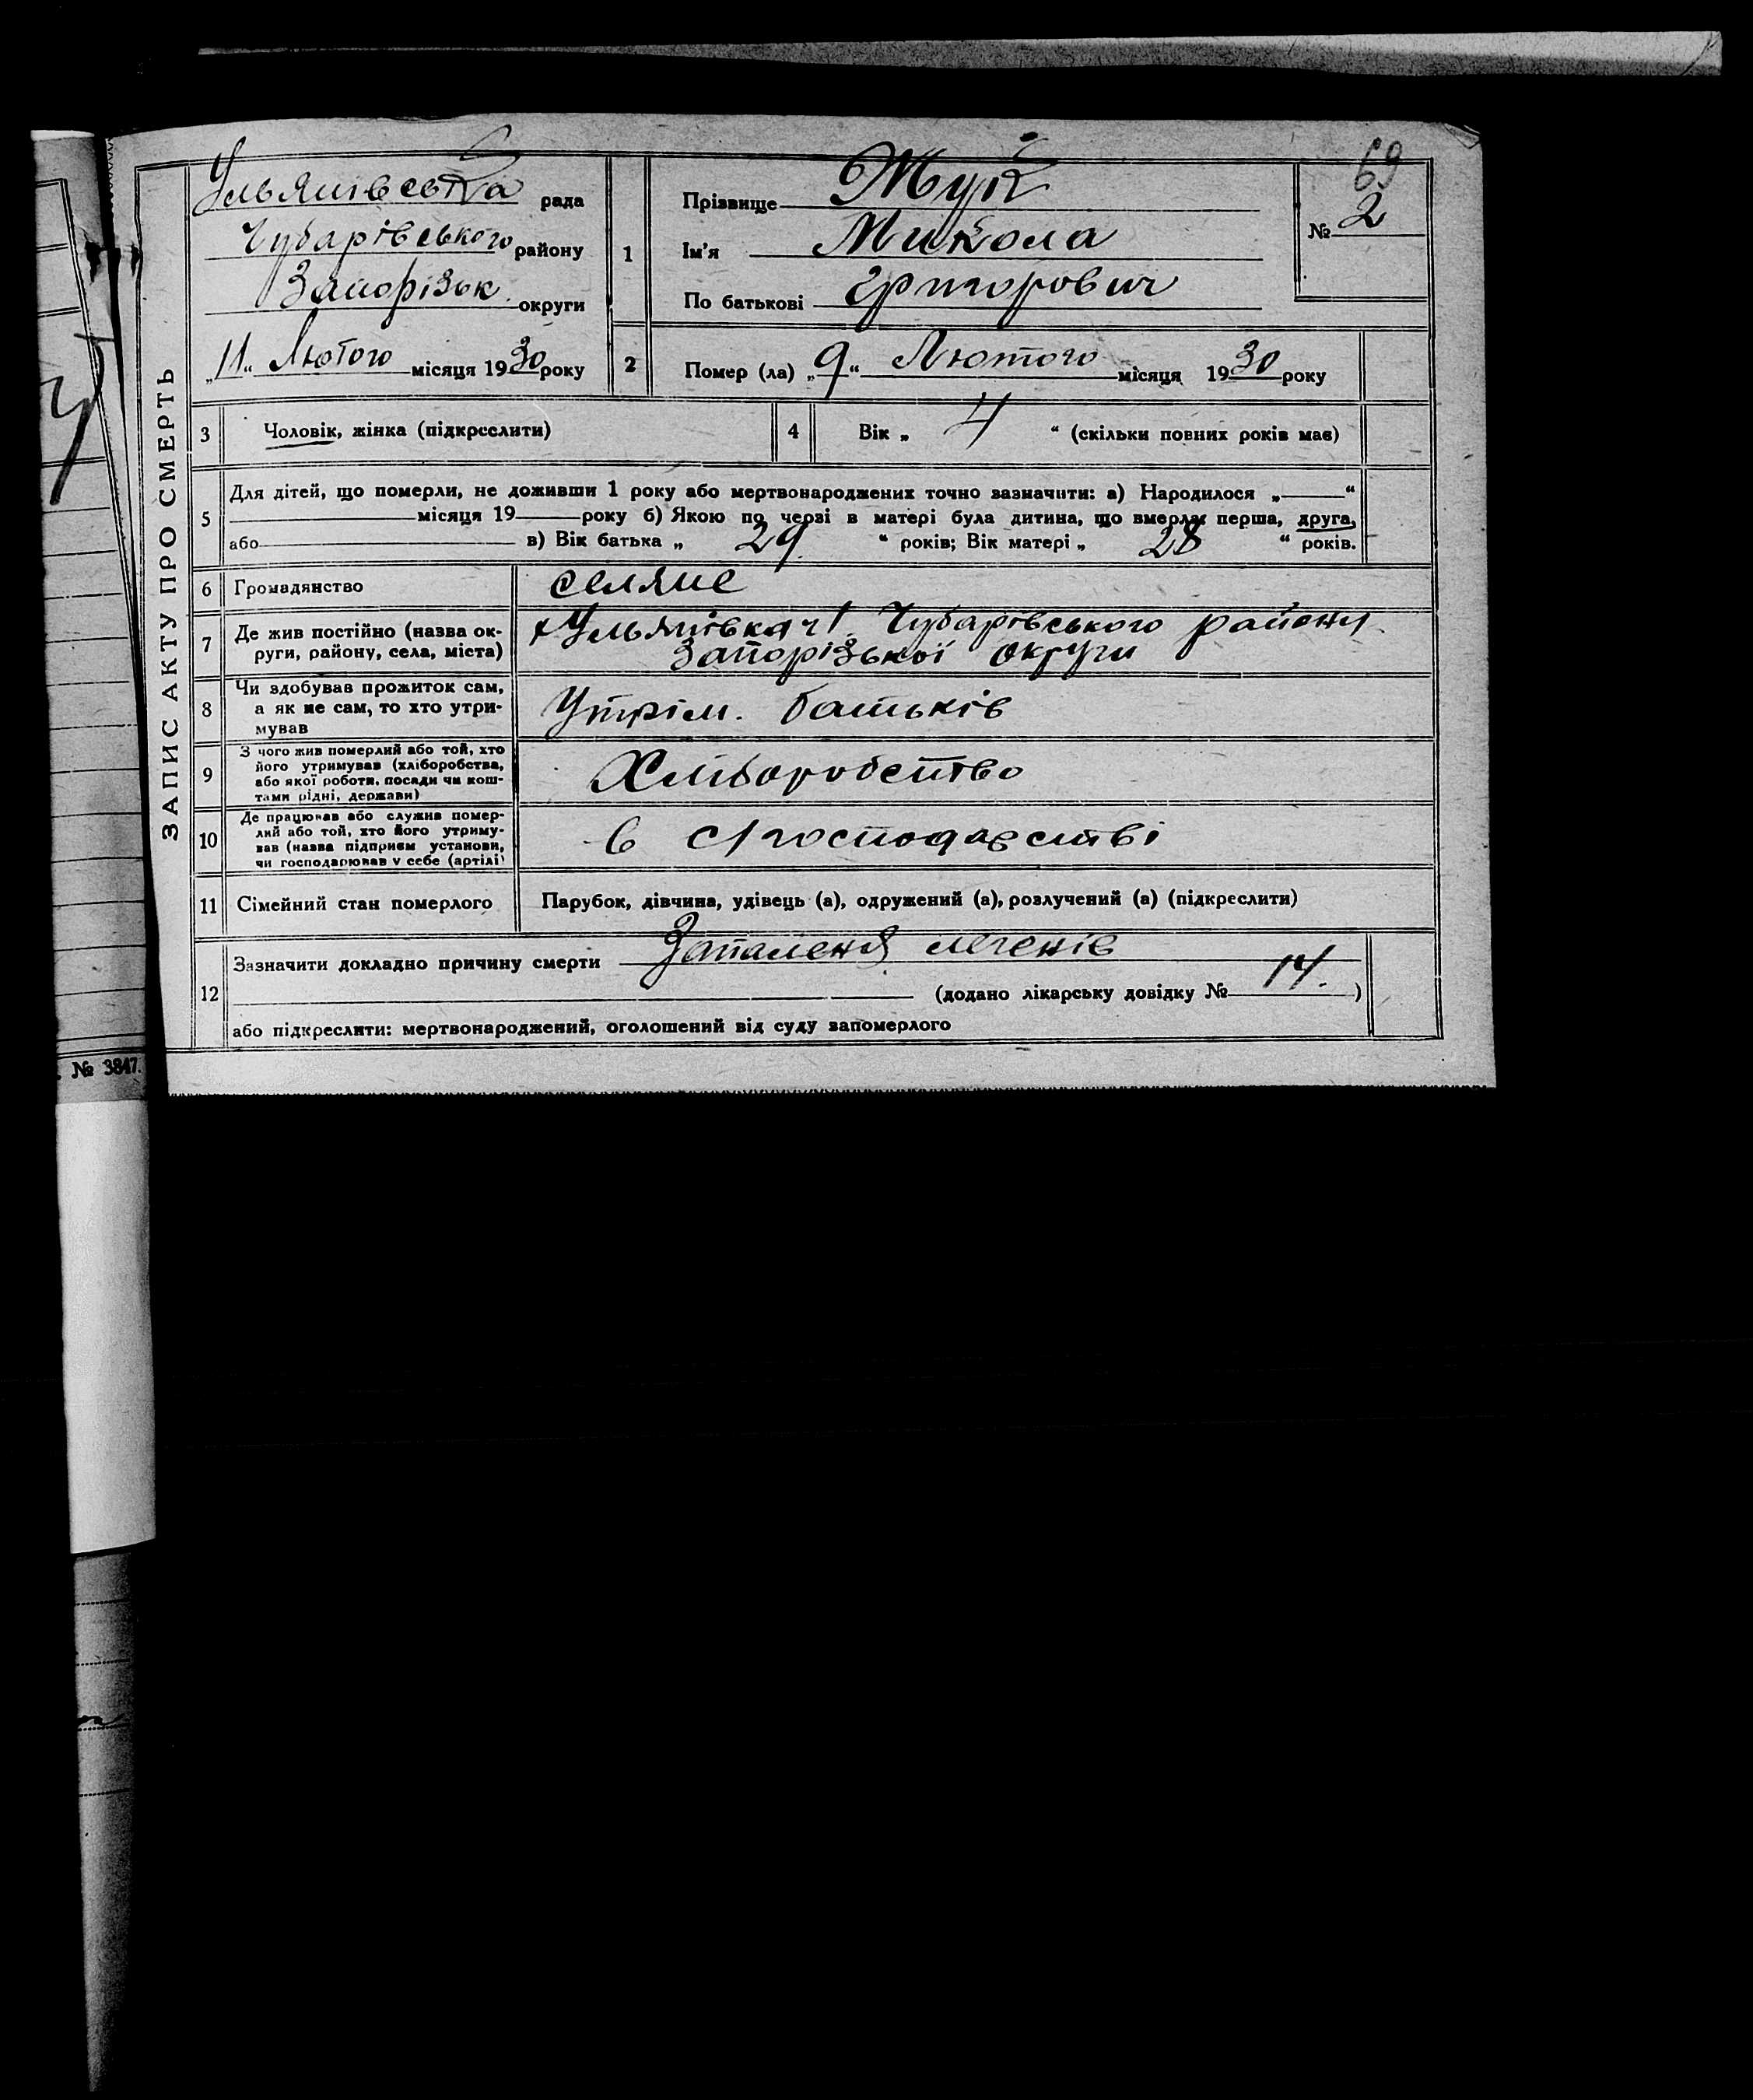 69
ЗАПИС АКТУ ПРО СМЕРТЬ
Ульянівська рада
Чубарівського району
Запорізьк. округи
„11“ Лютого місяця 1930 року
1
Прізвище Жук
Ім'я Микола
По батькові Григорович
№ 2
2 Помер (ла) „9“ Лютого місяця 1930 року
3 Чоловік, жінка (підкреслити)
4 Вік „ 4 “ (скільки повних років має)
5 Для дітей, що померли, не доживши 1 року або мертвонароджених точно зазначити: а) Народилося „ “
місяця 19 року б) Якою по черзі в матері була дитина, що вмерла: перша, друга,
або в) Вік батька „ 29 “ років; Вік матері „ 28 “ років.
6 Громадянство селяне
7 Де жив постійно (назва округи, району, села, міста)
Ульянівка ч1 Чубарівського району
Запорізької округи
8 Чи здобував прожиток сам,
а як не сам, то хто утри-
мував
Утрім. батьків
9 З чого жив померлий або той, хто
його утримував (хліборобства,
або якої роботи, посади чи кош-
тами рідні, держави)
Хліборобство
10 Де працював або служив помер-
лий або той, хто його утриму-
вав (назва підприєм установи,
чи господарював у себе (артілі)
в с/господарстві
11 Сімейний стан померлого Парубок, дівчина, удівець (а), одружений (а), розлучений (а) (підкреслити)
12 Зазначити докладно причину смерти Запаленя легенів
(додано лікарську довідку № 14. )
або підкреслити: мертвонароджений, оголошений від суду запомерлого
. № 3847.